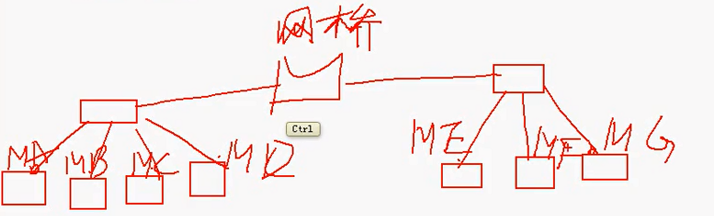 网桥
Ctrl
MA MB MC MD ME MF MG